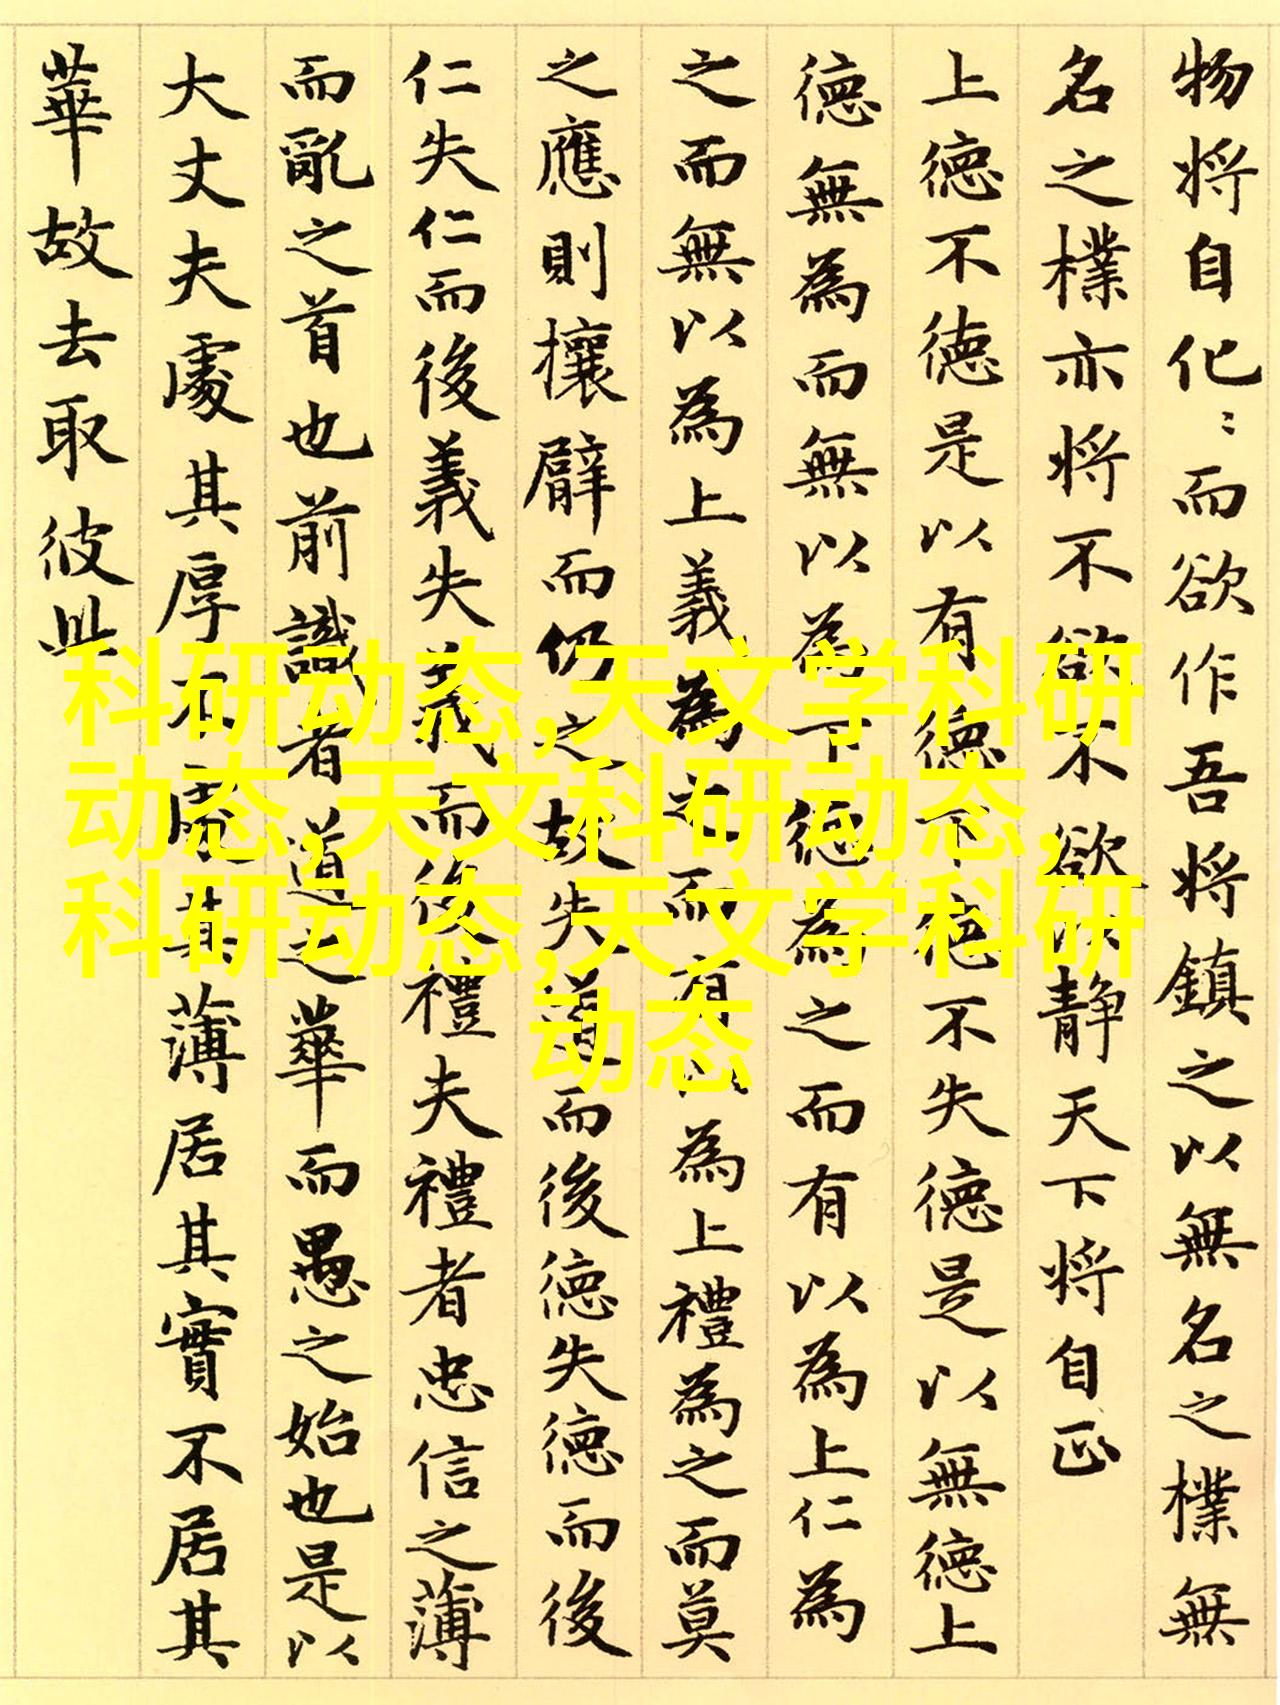 物将自化〻而欲作吾将鎮之以無名之樸無
名之樸亦将不欲不欲以静天下将自正
上德不德是以有德下德不失德是以無德上
德無為而無以為下德為之而有以為上仁為
之而無以為上義為之而有以為上禮為之而莫
之應則攘臂而仍之故失道而後德失德而後
仁失仁而後義失義而後禮夫禮者忠信之薄
而亂之首也前識者道之華而愚之始也是以
大丈夫處其厚不處其薄居其實不居其
華故去取彼此
科研动态,天文学科研
动态,天文科研动态,
科研动态,天文学科研
动态